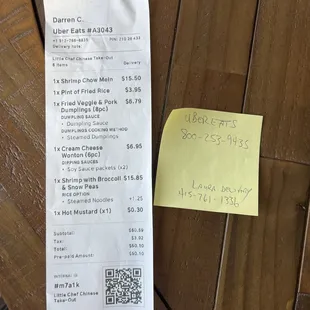 Darren C.
Uber Eats #A3043
Delivery
Little Chef Chinese Take-Out
6 items
Delivery
1x Shrimp Chow Mein $15.50
1x Pint of Fried Rice $3.95
1x Fried Veggie & Pork $8.79
Dumplings (8pc)
DUMPLING SAUCE
• Dumpling Sauce
DUMPLINGS COOKING METHOD
• Steamed Dumplings
1x Cream Cheese $6.95
Wonton (6pc)
DIPPING SAUCES
• Soy Sauce packets (x2)
1x Shrimp with Broccoli $15.85
& Snow Peas
RICE OPTION
• Steamed Noodles +1.25
1x Hot Mustard (x1) $0.30
Subtotal:
Tax:
Total:
Pre-paid Amount:
#m7a1k
Little Chef Chinese
Take-Out
UBER EATS
800-253-9435
415-761-1336